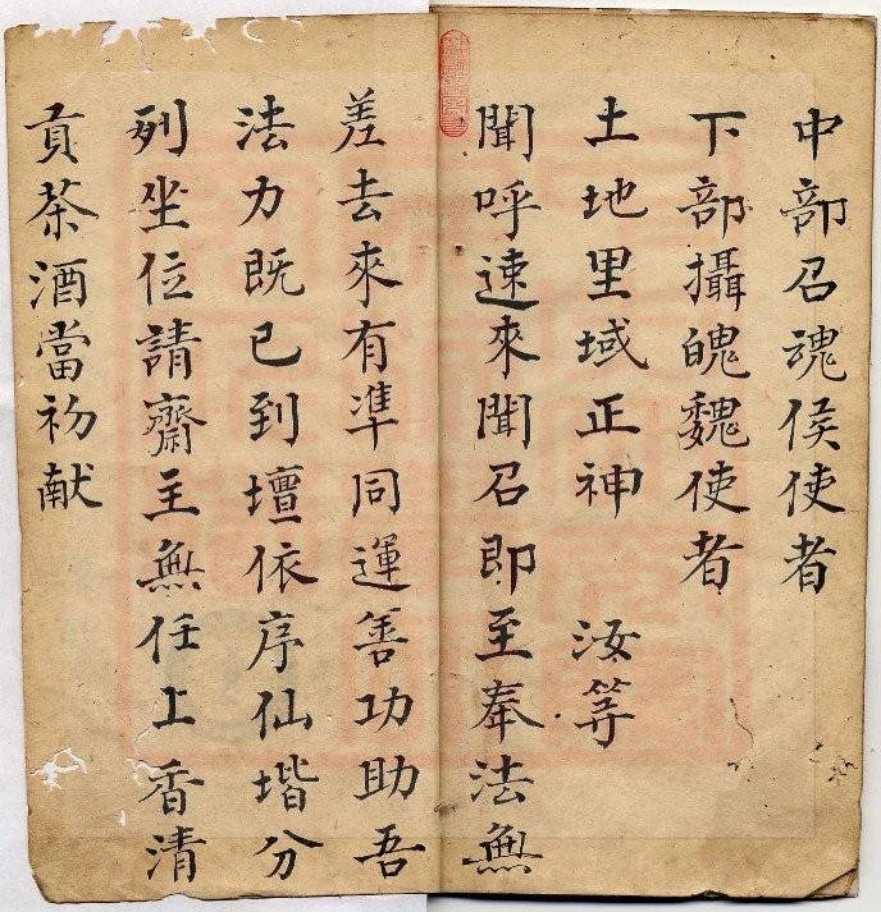 中部召魂侯使者
下部攝魄魏使者
土地里域正神　汝等
聞呼速來聞召即至奉法無
差去來有凖同運善功助吾
法力既已到壇依序仙堦分
列坐位請齋主無任上香清
貢茶酒當初献